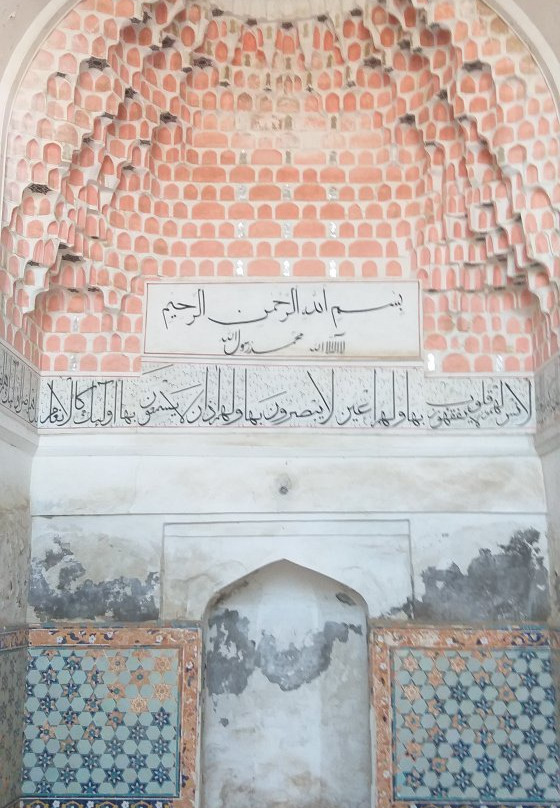 بسم الله الرحمن الرحيم
لا اله الا الله محمد رسول الله
لانس لهم قلوب لا يفقهون بها ولهم اعين لا يبصرون بها ولهم اذان لا يسمعون بها اوليك كالانعام